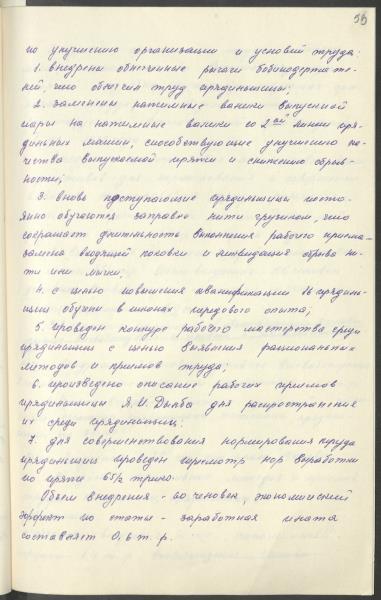 55
по улучшению организации и условий труда:
1. внедрены облегченные рычаги бобинодержате-
лей, что облегчит труд прядильщицы;
2. заменены нажимные валики выпускной
пары на нажимные валики со 2ой линии пря-
дильных машин, способствующие улучшению ка-
чества выпускаемой пряжи и снижению обрыв-
ности;
3. вновь поступающие прядильщицы посто-
янно обучаются заправке нити грузиком, что
сокращает длительность выполнения рабочего приема-
замена входящей паковки и ликвидация обрыва ни-
ти или мычки;
4. с целью повышения квалификации 16 прядиль-
щиц обучены в школах передового опыта;
5. проведен конкурс рабочего мастерства среди
прядильщиц с целью выявления рациональных
методов и приемов труда;
6. произведено описание рабочих приемов
прядильщицы Я.И. для распространения
их среди прядильщиц;
7. для совершенствования нормирования труда
прядильщиц проведен пересмотр норм выработки
по пряже 65/2
Объем внедрения - 60 человек, экономический
эффект по статье - заработная плата
составляет 0,6 т.р.